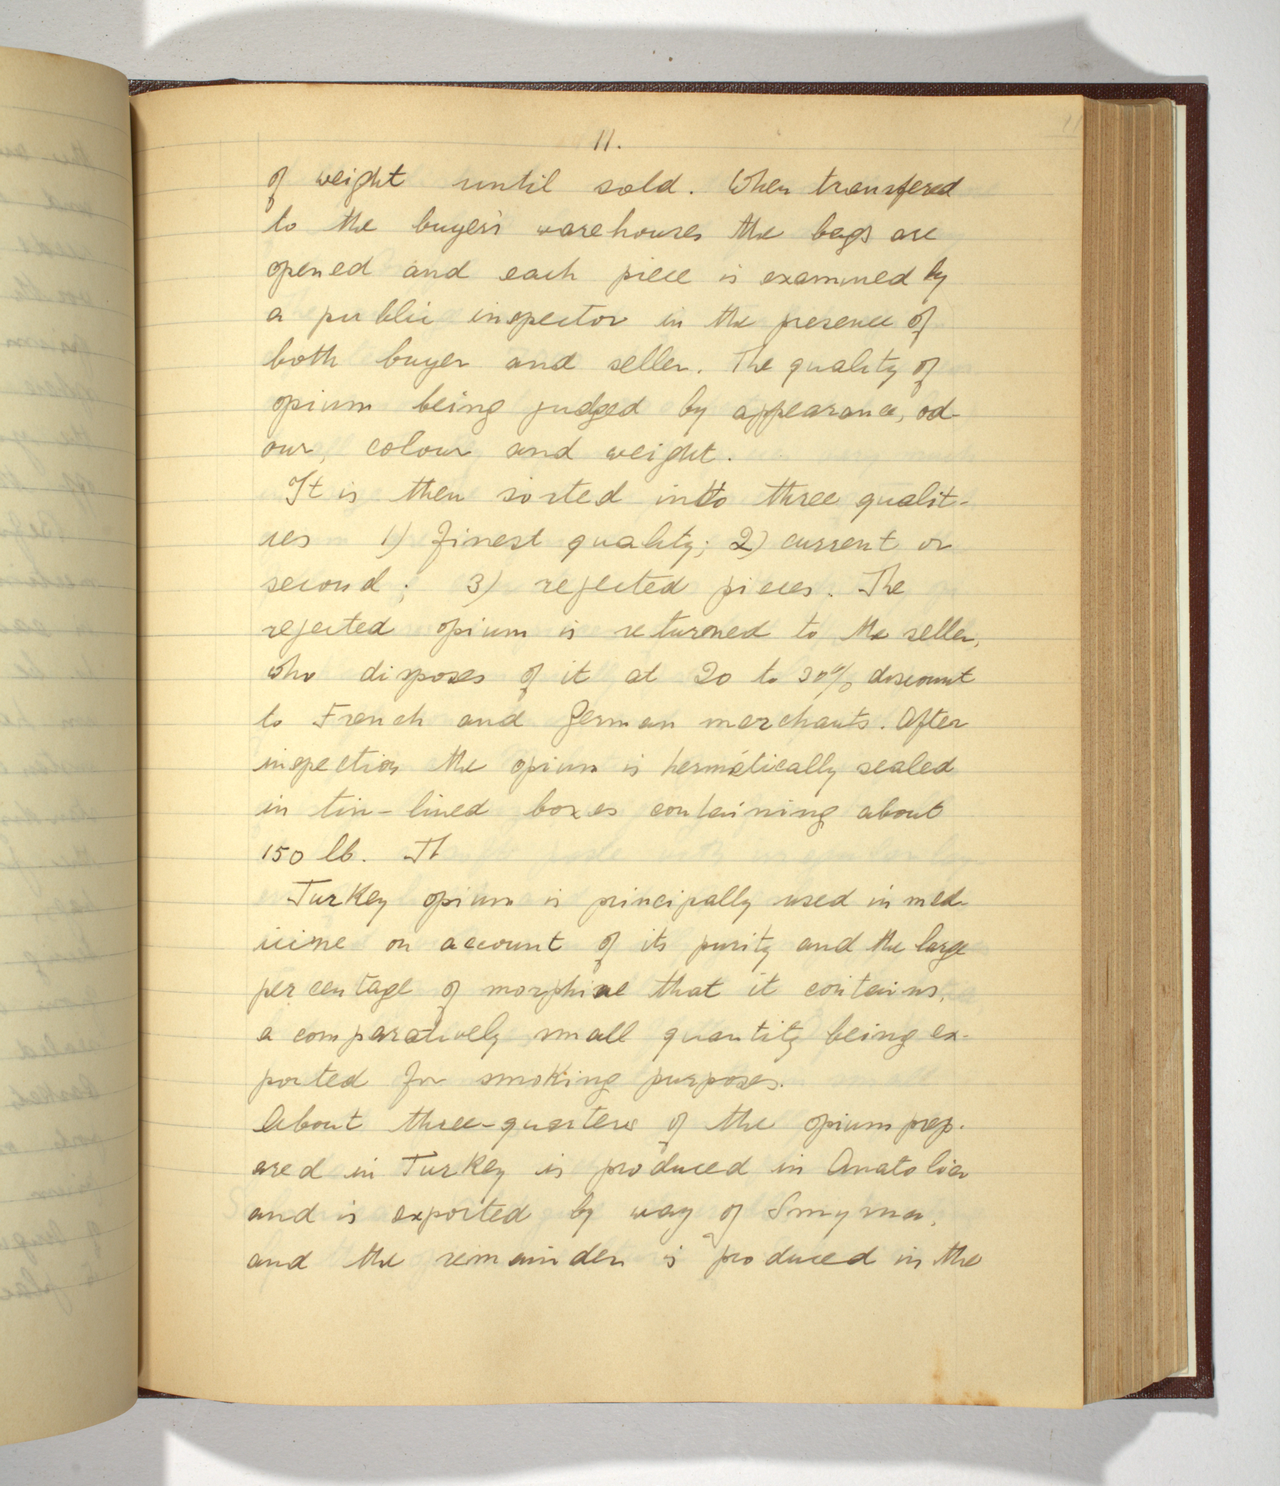 11.
of weight until sold. When transfered
to the buyer's warehouses the bags are
opened and each piece is examined by
a public inspector in the presence of
both buyer and seller. The quality of
opium being judged by appearance, od-
our, colour and weight.
It is then sorted into three qualit-
ies 1) finest quality; 2) current or
second; 3) rejected pieces. The
rejected opium is returned to the seller,
who disposes of it at 20 to 30% discount
to French and German merchants. After
inspection the opium is hermetically sealed
in tin-lined boxes containing about
150 lb. It
Turkey opium is principally used in med-
icine on account of its purity and the large
percentage of morphine that it contains,
a comparatively small quantity being ex-
ported for smoking purposes.
About three-quarters of the opium prep-
ared in Turkey is produced in Anatolia
and is exported by way of Smyrna,
and the remainder is produced in the